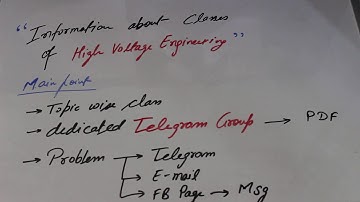 "Information about Classes
of High Voltage Engineering"
Main point
→ Topic wise class
→ dedicated Telegram Group → PDF
→ Problem → Telegram
→ E-mail
→ FB Page → Msg